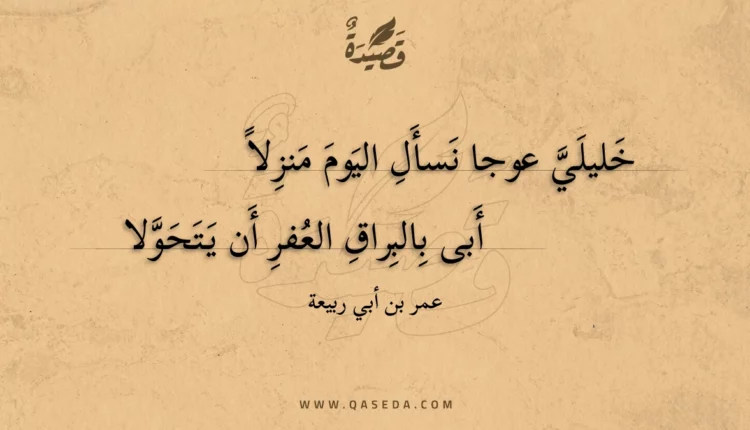 قَصِيدَةٌ
خَليلَيَّ عوجا نَسأَلِ اليَومَ مَنزِلاً
أَبى بِالبِراقِ العُفرِ أَن يَتَحَوَّلا
عمر بن أبي ربيعة
WWW.QASEDA.COM